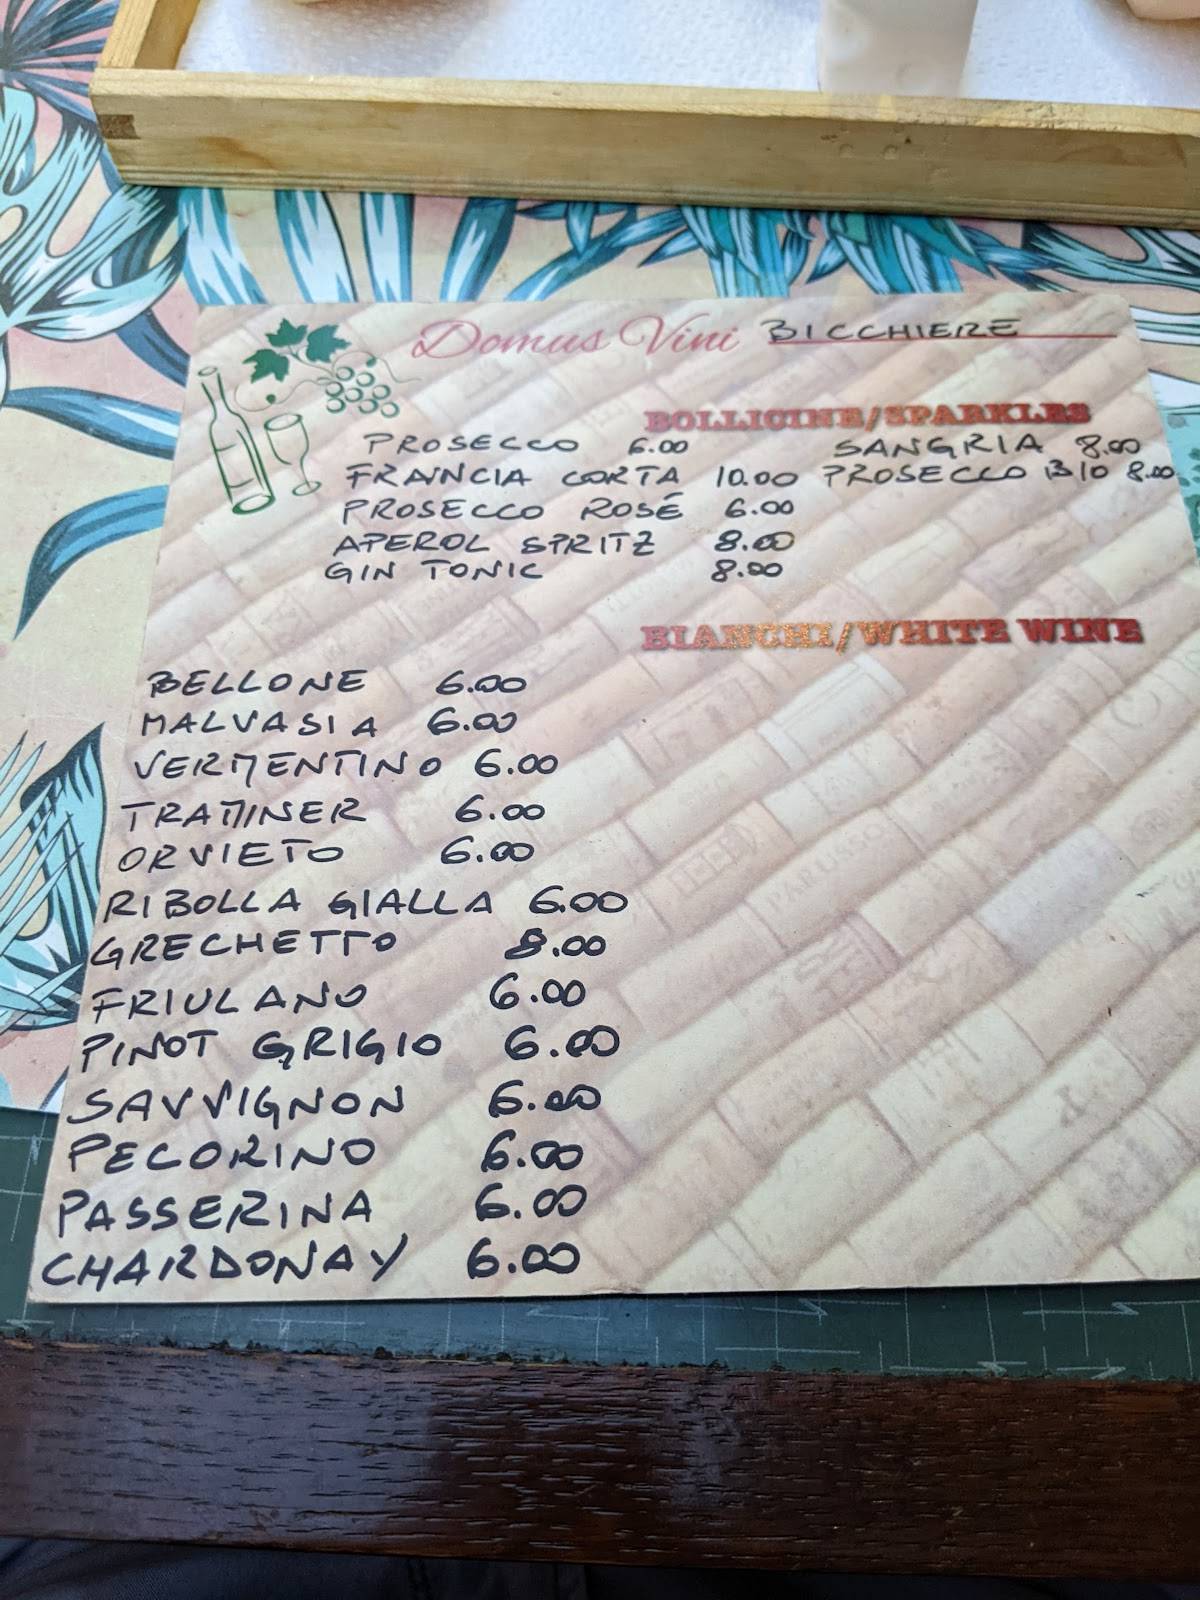 Domus Vini BICCHIERE
BOLLICINE/SPARKLES
PROSECCO 6.00 SANGRIA 8.00
FRANCIA CORTA 10.00 PROSECCO BIO 8.00
PROSECCO ROSÉ 6.00
APEROL SPRITZ 8.00
GIN TONIC 8.00
BIANCHI/WHITE WINE
BELLONE 6.00
MALVASIA 6.00
VERMENTINO 6.00
TRAMINER 6.00
ORVIETO 6.00
RIBOLLA GIALLA 6.00
GRECHETTO 8.00
FRIULANO 6.00
PINOT GRIGIO 6.00
SAVVIGNON 6.00
PECORINO 6.00
PASSERINA 6.00
CHARDONAY 6.00